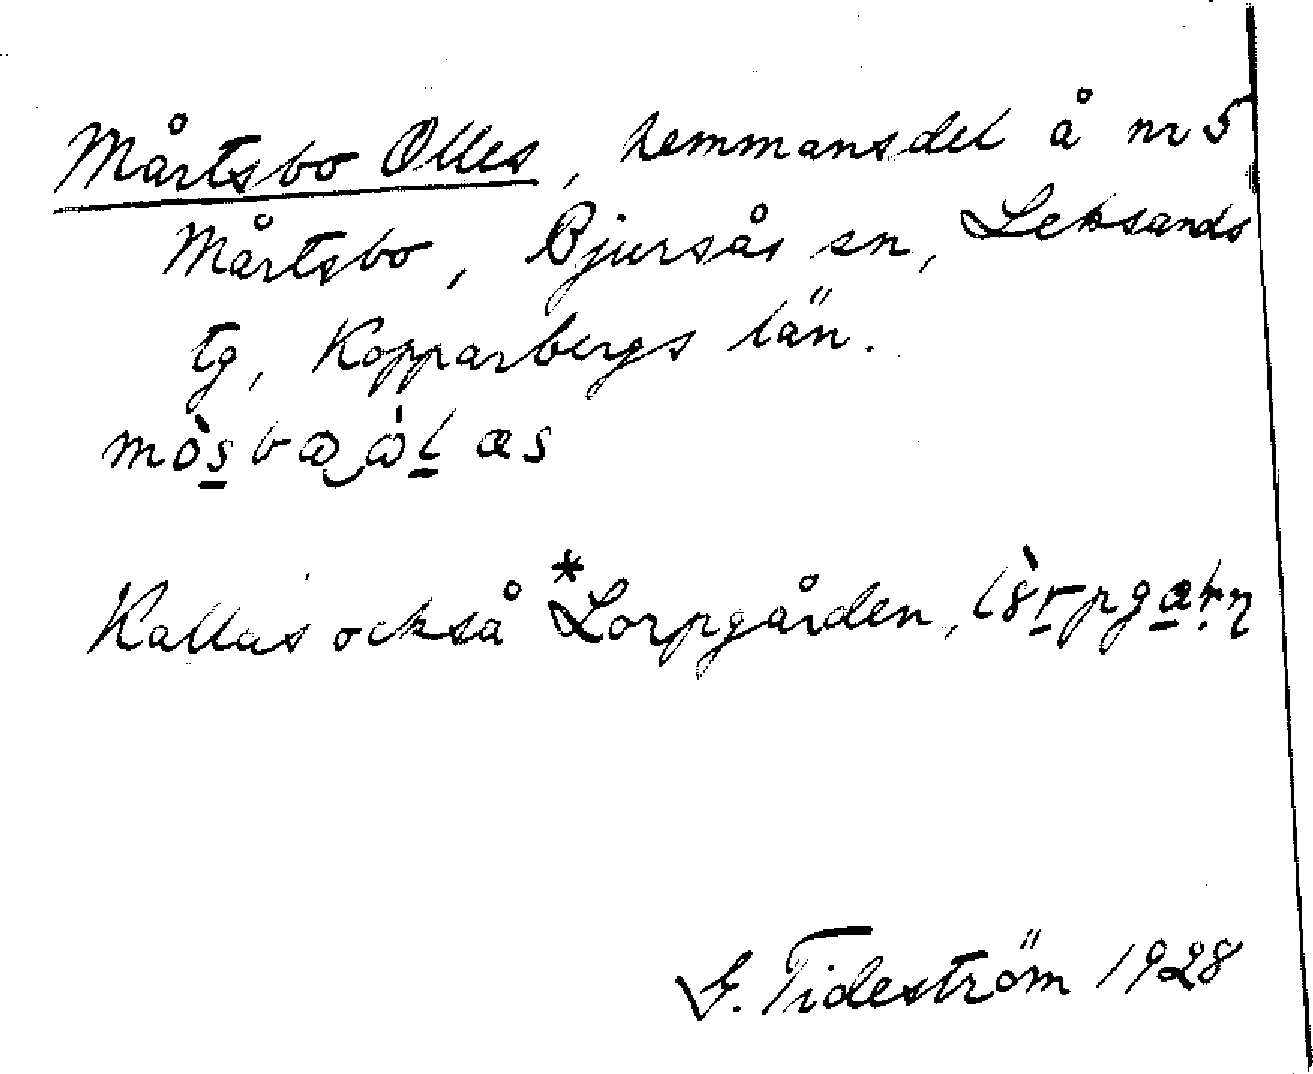 Mårtsbo Olles, hemmansdel å nr 5
Mårtsbo, Bjursås sn, Leksands
tg, Kopparbergs län.
Kallas också *Lorpgården,
G. Tideström 1928